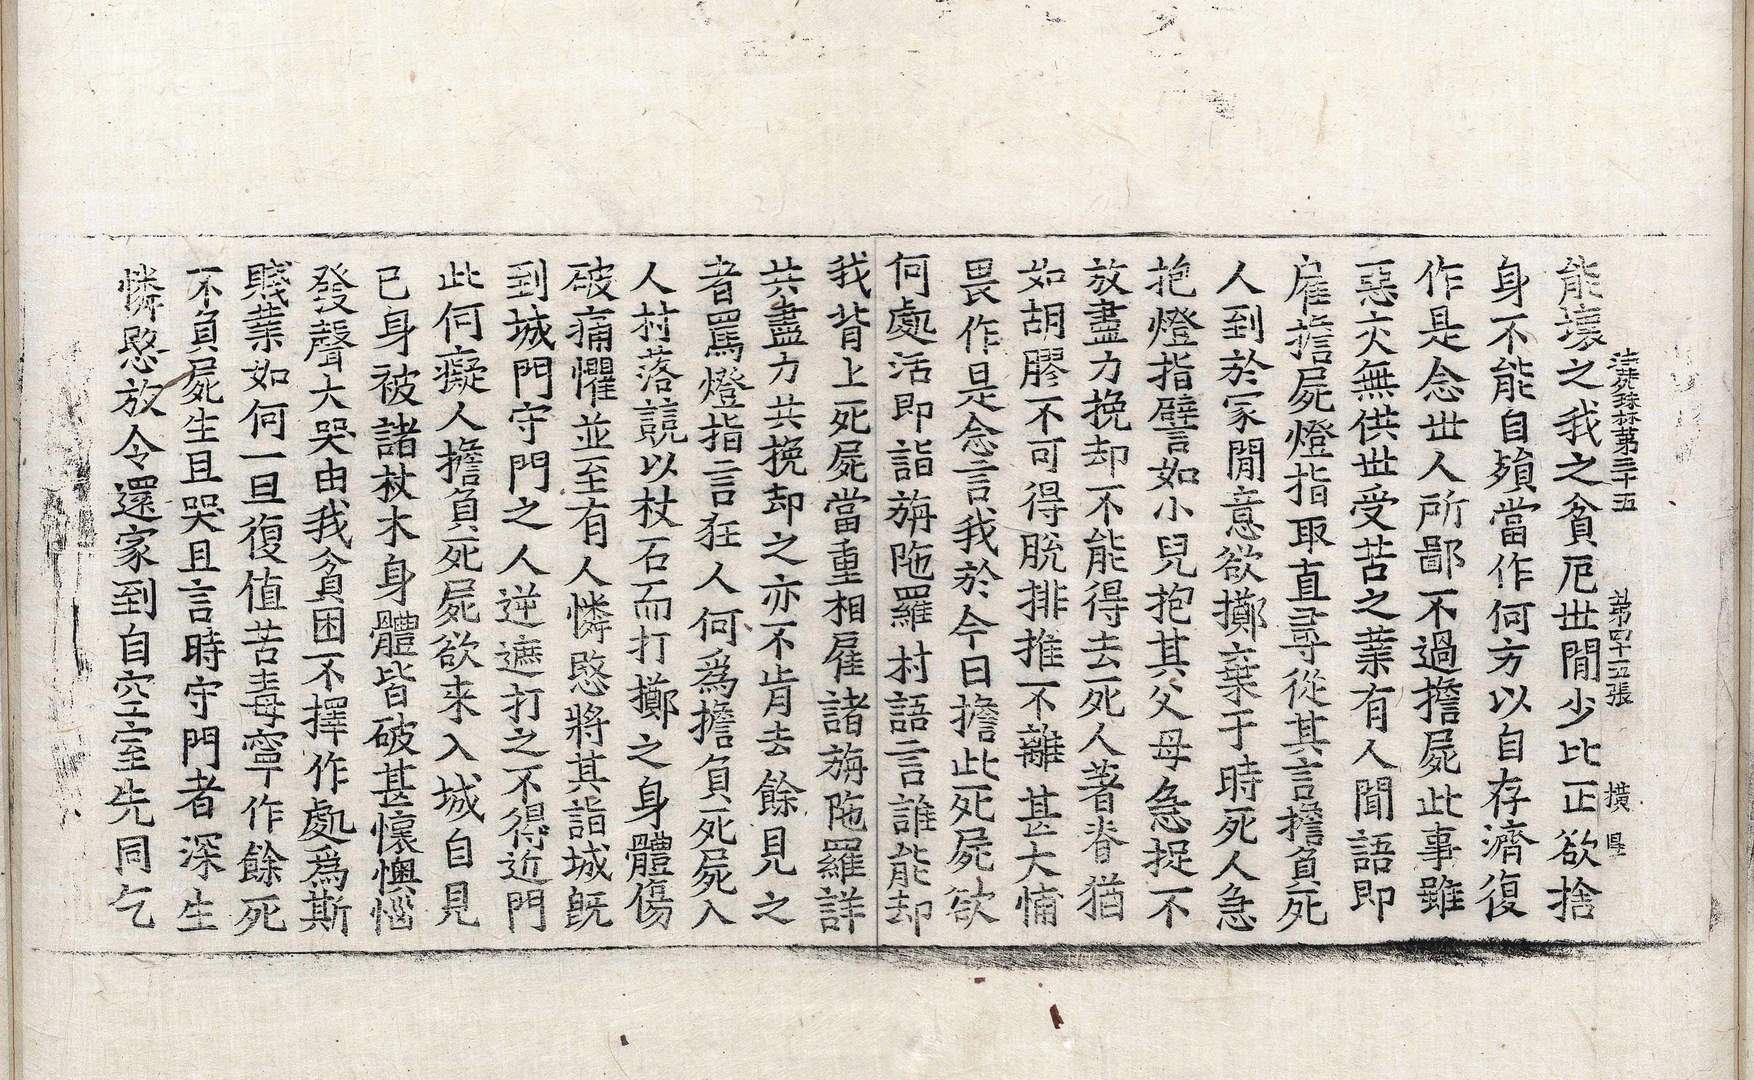 法苑珠林第五十五　第四十五張　橫
能壞之我之貧厄世閒少比正欲捨
身不能自殞當作何方以自存濟復
作是念世人所鄙不過擔屍此事雖
惡交無供世受苦之業有人聞語即
雇擔屍燈指取直尋從其言擔負死
人到於冢閒意欲擲棄于時死人急
抱燈指譬如小兒抱其父母急捉不
放盡力挽却不能得去死人著脊猶
如胡膠不可得脫排推不離甚大怖
畏作是念言我於今日擔此死屍欲
何處活即詣旃陁羅村語言誰能却
我背上死屍當重相雇諸旃陁羅詳
共盡力共挽却之亦不肯去餘見之
者罵燈指言狂人何爲擔負死屍入
人村落競以杖石而打擲之身體傷
破痛懼並至有人憐愍將其詣城旣
到城門守門之人逆遮打之不得近門
此何癡人擔負死屍欲來入城自見
已身被諸杖木身體皆破甚懷懊惱
發聲大哭由我貧困不擇作處爲斯
賤業如何一旦復值苦毒寧作餘死
不負屍生且哭且言時守門者深生
憐愍放令還家到自空室先同乞